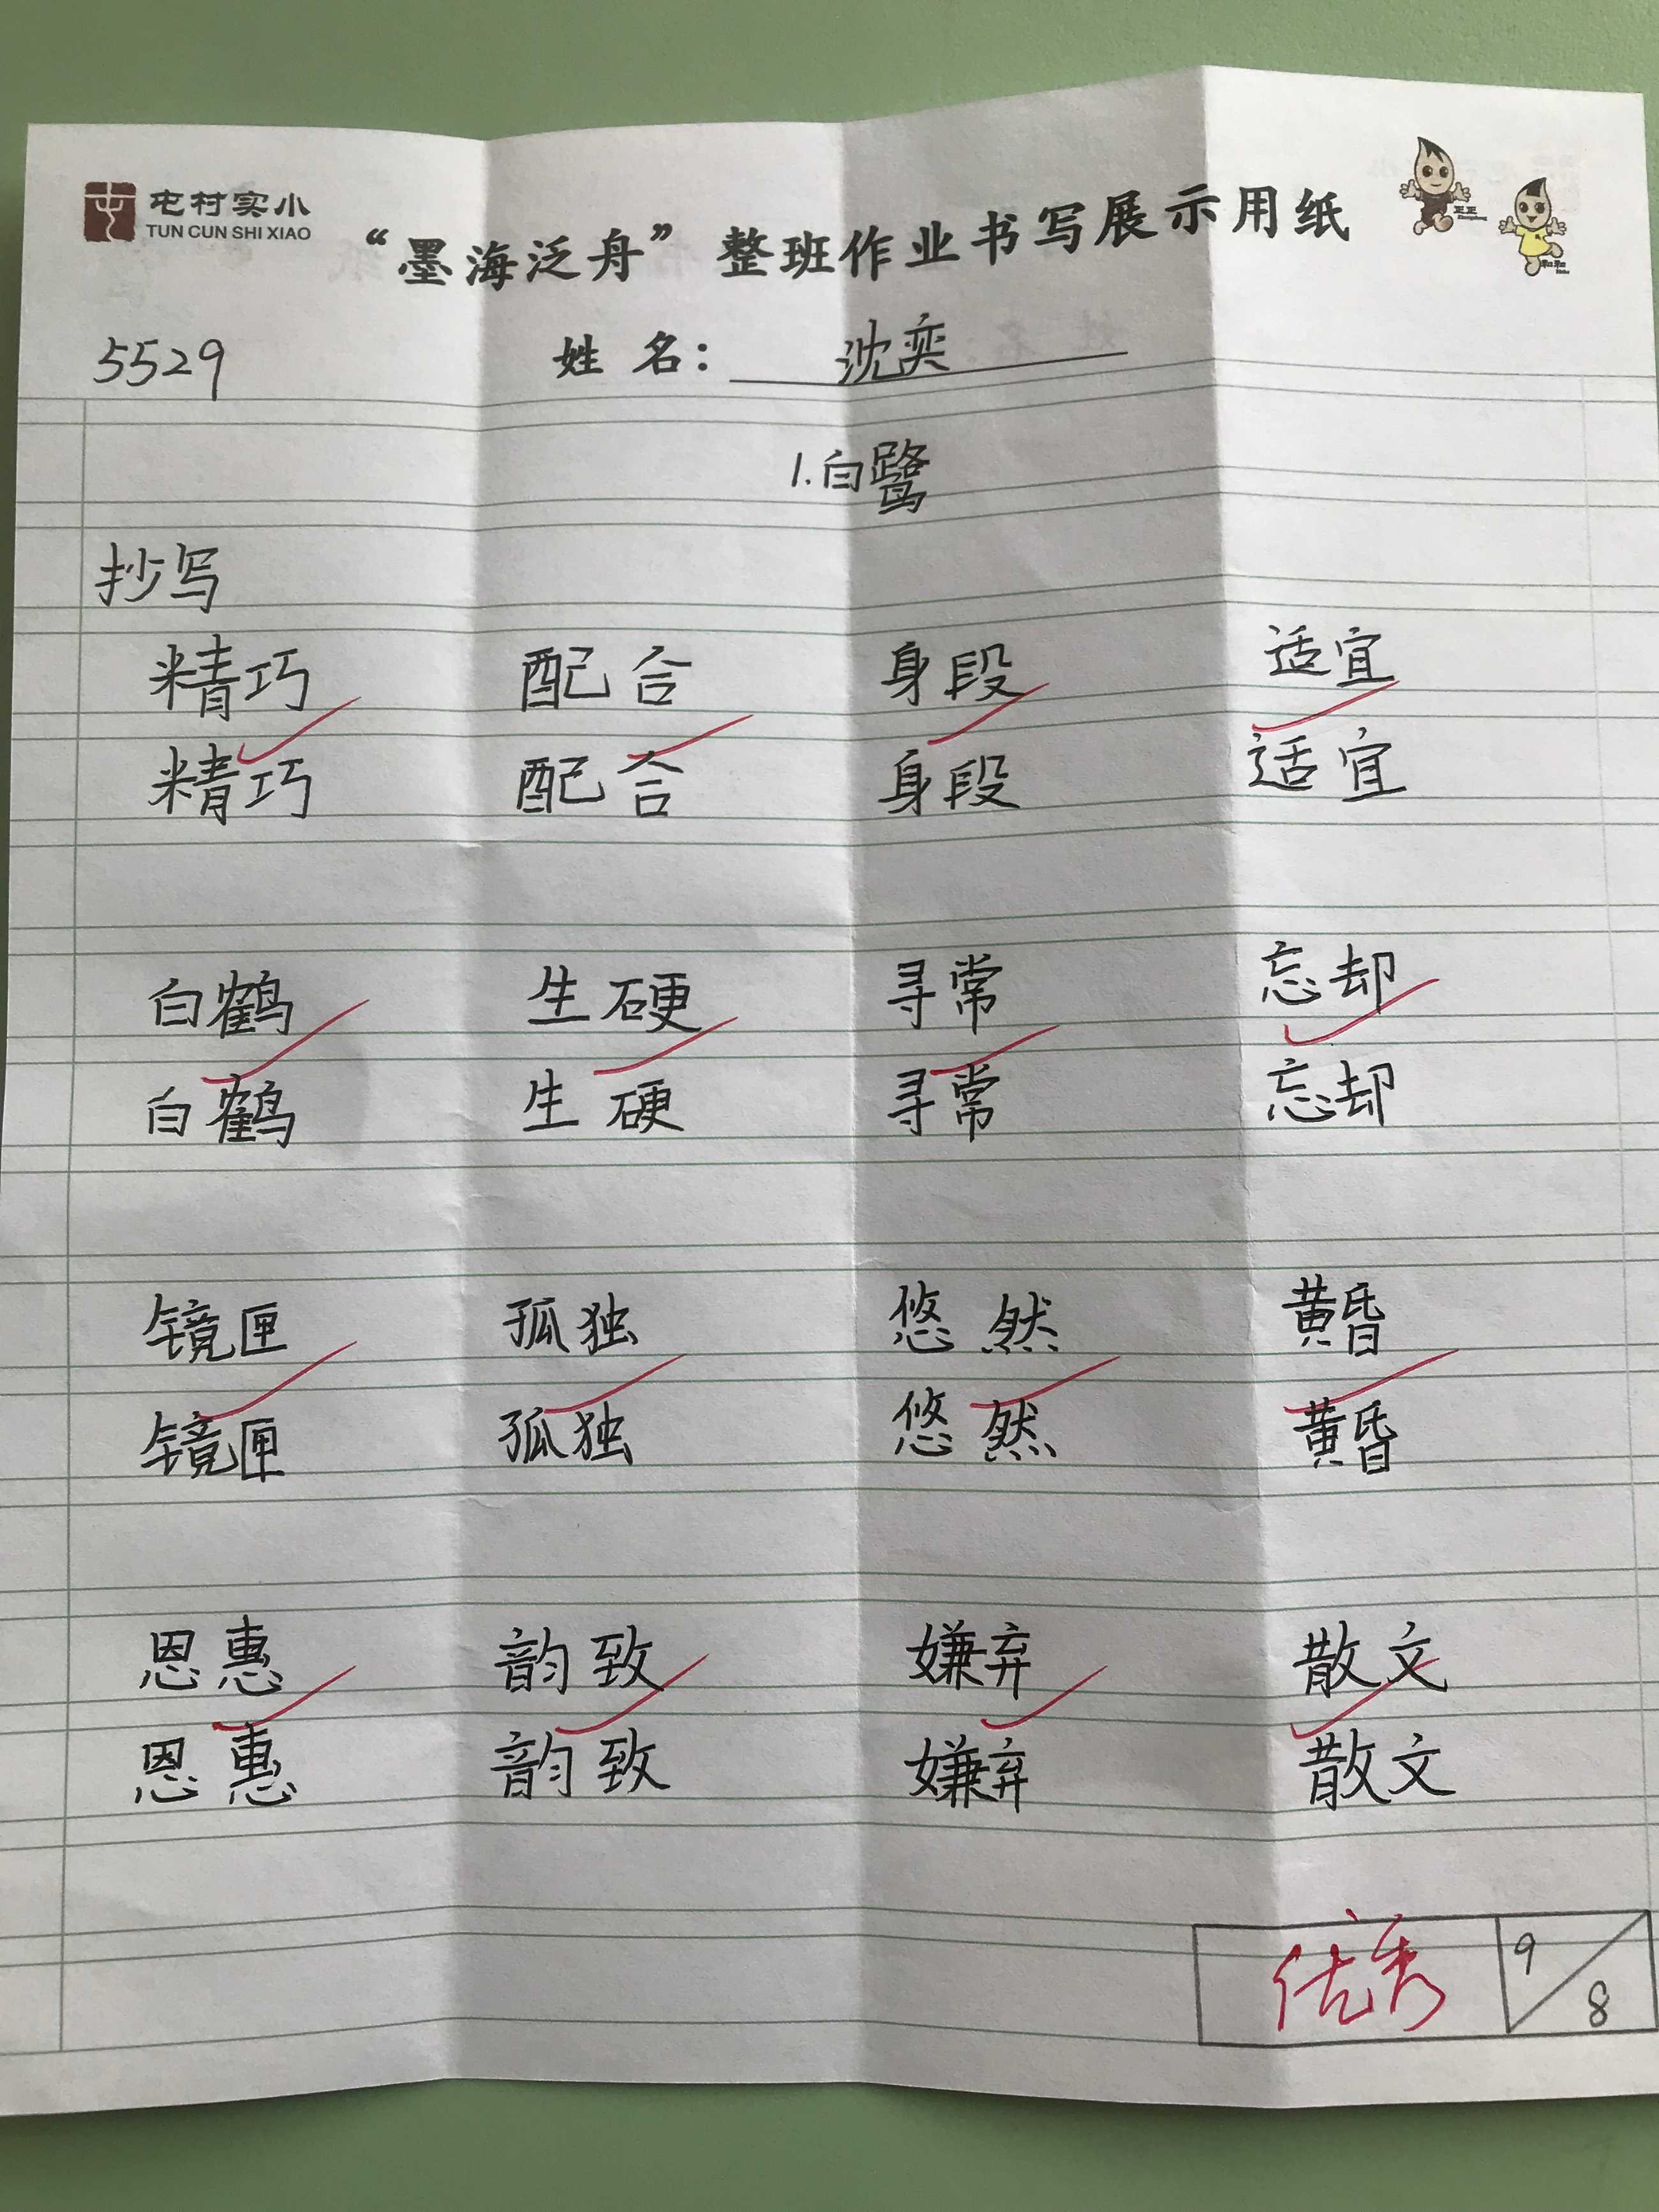 屯村实小
TUN CUN SHI XIAO
“墨海泛舟”整班作业书写展示用纸
正正
和和
5529 姓 名： 沈奕
1.白鹭
抄写
精巧 配合 身段 适宜
精巧 配合 身段 适宜
白鹤 生硬 寻常 忘却
白鹤 生硬 寻常 忘却
镜匣 孤独 悠然 黄昏
镜匣 孤独 悠然 黄昏
恩惠 韵致 嫌弃 散文
恩惠 韵致 嫌弃 散文
优秀 9/8